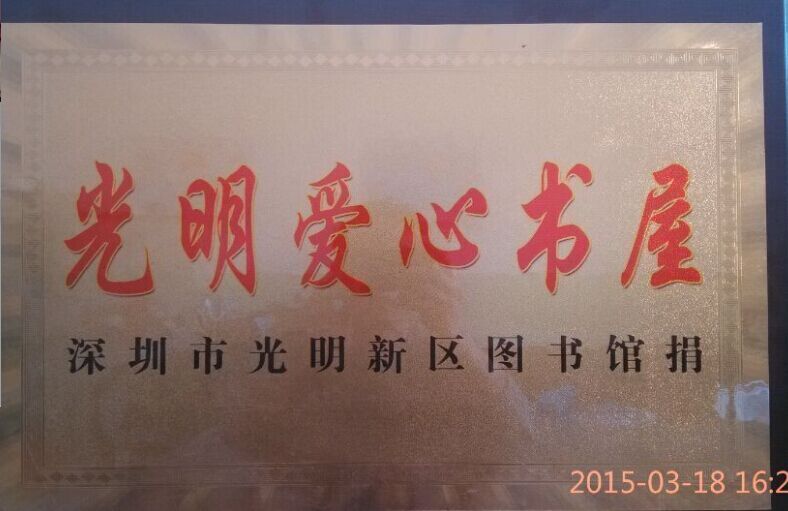 光明爱心书屋
深圳市光明新区图书馆捐
2015-03-18 16:2